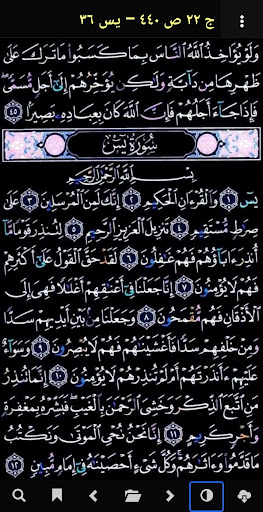 ج ٢٢ ص ٤٤٠ – يس ٣٦
وَلَوْ يُؤَاخِذُ ٱللَّهُ ٱلنَّاسَ بِمَا كَسَبُوا۟ مَا تَرَكَ عَلَىٰ
ظَهْرِهَا مِن دَآبَّةٍ وَلَٰكِن يُؤَخِّرُهُمْ إِلَىٰٓ أَجَلٍ مُّسَمًّى
فَإِذَا جَآءَ أَجَلُهُمْ فَإِنَّ ٱللَّهَ كَانَ بِعِبَادِهِۦ بَصِيرًۢا
سُورَةُ يسٓ
بِسْمِ ٱللَّهِ ٱلرَّحْمَٰنِ ٱلرَّحِيمِ
يسٓ ١ وَٱلْقُرْءَانِ ٱلْحَكِيمِ ٢ إِنَّكَ لَمِنَ ٱلْمُرْسَلِينَ ٣ عَلَىٰ
صِرَٰطٍ مُّسْتَقِيمٍ ٤ تَنزِيلَ ٱلْعَزِيزِ ٱلرَّحِيمِ ٥ لِتُنذِرَ قَوْمًا مَّآ
أُنذِرَ ءَابَآؤُهُمْ فَهُمْ غَٰفِلُونَ ٦ لَقَدْ حَقَّ ٱلْقَوْلُ عَلَىٰٓ أَكْثَرِهِمْ
فَهُمْ لَا يُؤْمِنُونَ ٧ إِنَّا جَعَلْنَا فِىٓ أَعْنَٰقِهِمْ أَغْلَٰلًا فَهِىَ إِلَى
ٱلْأَذْقَانِ فَهُم مُّقْمَحُونَ ٨ وَجَعَلْنَا مِنۢ بَيْنِ أَيْدِيهِمْ سَدًّا
وَمِنْ خَلْفِهِمْ سَدًّا فَأَغْشَيْنَٰهُمْ فَهُمْ لَا يُبْصِرُونَ ٩ وَسَوَآءٌ
عَلَيْهِمْ ءَأَنذَرْتَهُمْ أَمْ لَمْ تُنذِرْهُمْ لَا يُؤْمِنُونَ ١٠ إِنَّمَا تُنذِرُ
مَنِ ٱتَّبَعَ ٱلذِّكْرَ وَخَشِىَ ٱلرَّحْمَٰنَ بِٱلْغَيْبِ فَبَشِّرْهُ بِمَغْفِرَةٍ
وَأَجْرٍ كَرِيمٍ ١١ إِنَّا نَحْنُ نُحْىِ ٱلْمَوْتَىٰ وَنَكْتُبُ
مَا قَدَّمُوا۟ وَءَاثَٰرَهُمْ وَكُلَّ شَىْءٍ أَحْصَيْنَٰهُ فِىٓ إِمَامٍ مُّبِينٍ ١٢